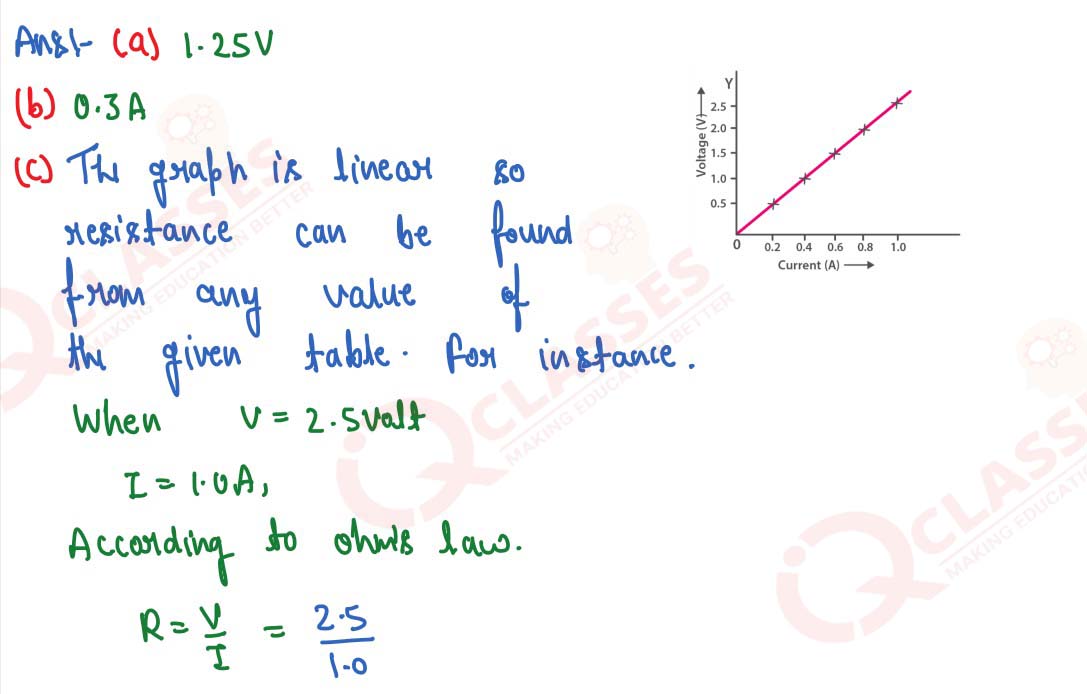 Ans:- (a) 1.25V
(b) 0.3A
(c) The graph is linear so
resistance can be found
from any value of
the given table. For instance.
When V = 2.5 Volt
I = 1.0A,
According to ohm's law.
R = V/I = 2.5/1.0
Y
Voltage (V)
2.5
2.0
1.5
1.0
0.5
0 0.2 0.4 0.6 0.8 1.0
Current (A)
IQ CLASSES
MAKING EDUCATION BETTER
IQ CLASSES
MAKING EDUCATION BETTER
IQ CLASSES
MAKING EDUCATION